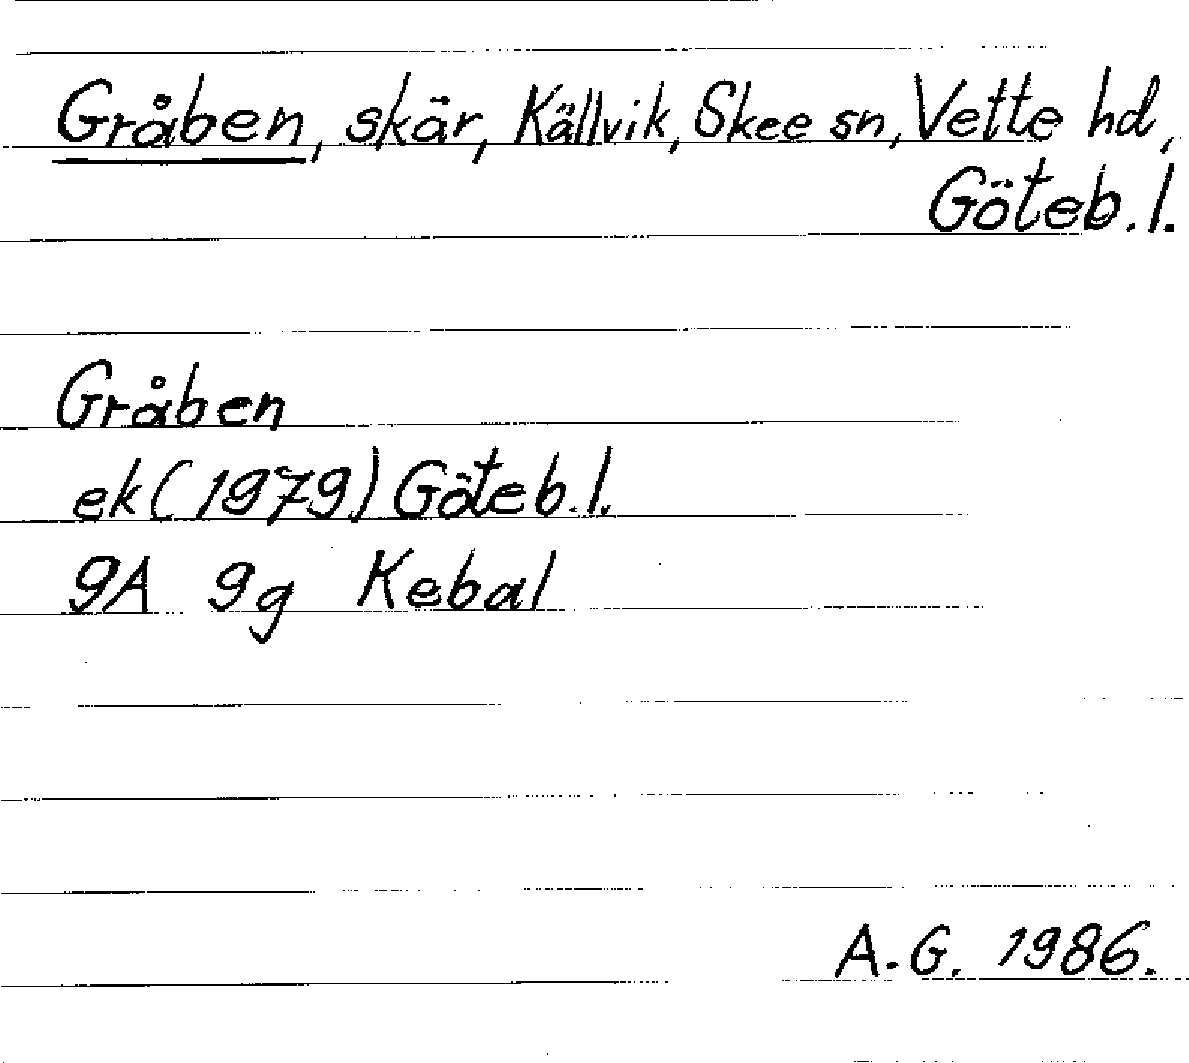 Gråben, skär, Källvik, Skee sn, Vette hd,
Göteb. l.
Gråben
ek (1979) Göteb. l.
9A 9g Kebal
A.G. 1986.